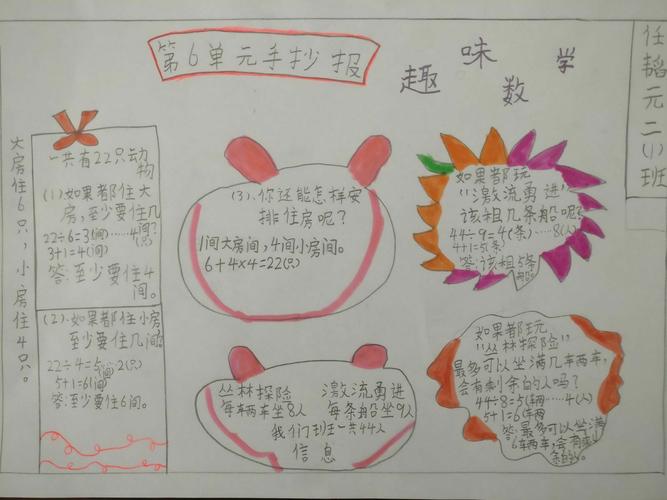 第6单元手抄报
趣味数学
任韬元二(1)班
大房住6只，小房住4只。
一共有22只动
物
(1)如果都住大
房，至少要住几
间?
22÷6=3(间)……4(只)
3+1=4(间)
答:至少要住4
间。
(2)、如果都住小房，
至少要住几间。
22÷4=5间 2(只)
5+1=6(间)
答:至少要住6间。
(3)、你还能怎样安
排住房呢?
1间大房间,4间小房间。
6+4×4=22(只)
如果都玩
"激流勇进"
该租几条船呢?
44÷9=4(条)…8(人)
4+1=5(条)
答:该租5条
船
丛林探险 激流勇进
每车两车坐8人 每条船坐9人
我们班一共44人
信息
如果都玩
"丛林探险"
最多可以坐满几车两车,
会有剩余的人吗?
44÷8=5(车两)……4(人)
5+1=6(车两)
答:最多可以坐满
6车两车,会有剩